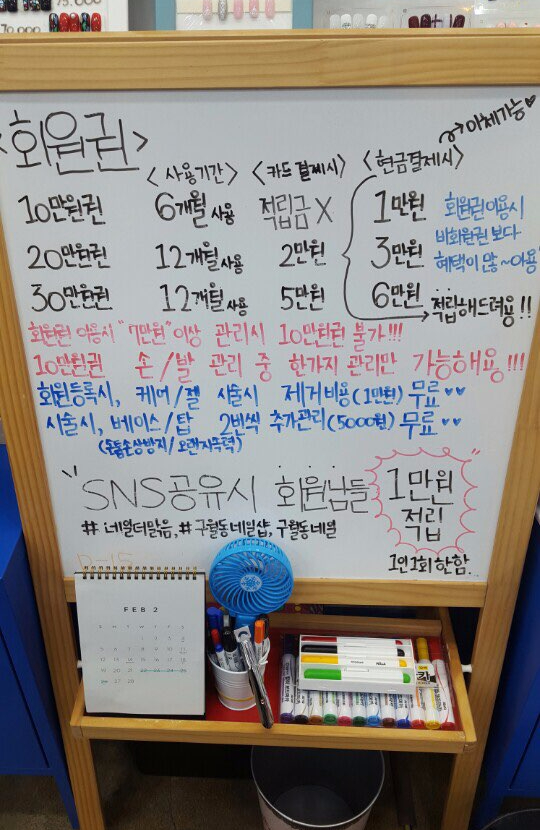 <회원권>
<사용기간> <카드 결제시> <현금결제시> 이체가능♥
10만원권 6개월 사용 적립금 X 1만원
20만원권 12개월 사용 2만원 3만원
30만원권 12개월 사용 5만원 6만원 적립해드려용!!
회원권이용시
비회원권 보다
혜택이 많~아용
회원권 이용시 "7만원" 이상 관리시 10만원권 불가!!!
10만원권 손/발 관리 중 한가지 관리만 가능해용!!!
회원등록시, 케어/젤 시술시 제거비용(1만원) 무료♥♥
시술시, 베이스/탑 2번씩 추가관리(5000원) 무료♥♥
(손톱손상방지/오랜지속력)
SNS공유시 회원님들 1만원
적립
#네일더맑음, #구월동네일샵, 구월동네일
1인1회 한함..
FEB 2